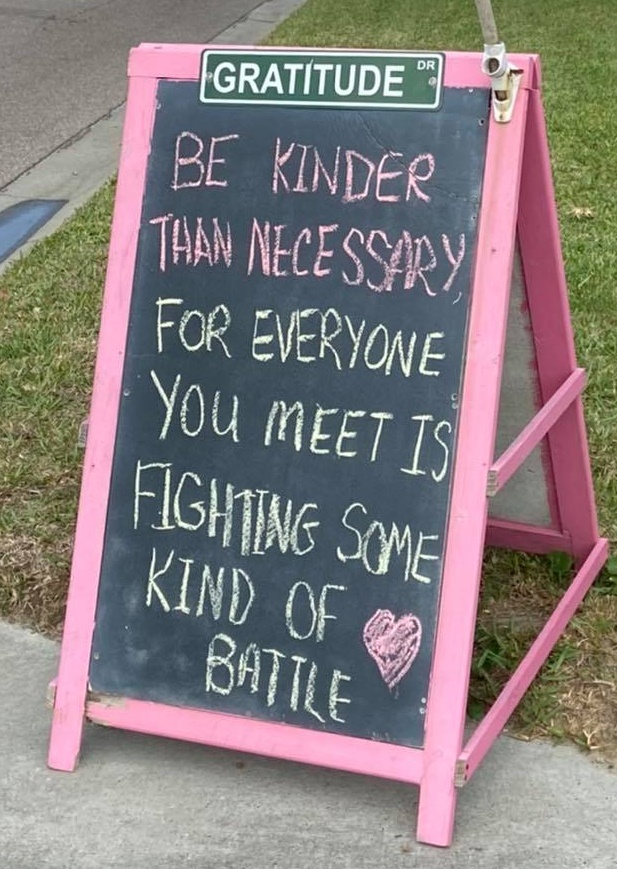 GRATITUDE DR
BE KINDER
THAN NECESSARY,
FOR EVERYONE
YOU MEET IS
FIGHTING SOME
KIND OF
BATTLE